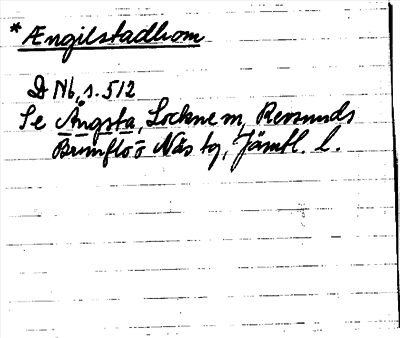 * Ængilstadhom
D Nb, s. 512
Se Ängsta, Lockne m, Revsunds
Brunflo o Näs tg, Jämtl. l.